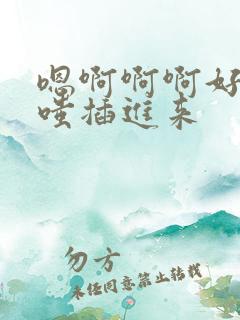 嗯啊啊啊好
嗤插进来
勿方
未经同意禁止转载